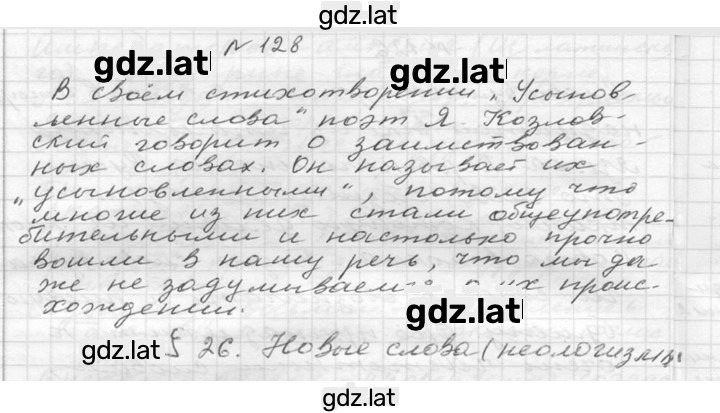 gdz.lat
№ 128
gdz.lat gdz.lat
В своём стихотворении „Усынов-
ленные слова" поэт Я. Козлов-
ский говорит о заимствован-
ных словах. Он называет их
„усыновленными", потому что
многие из них стали общеупотре-
бительными и настолько прочно
вошли в нашу речь, что мы да-
же не задумываем их проис-
хождении.
gdz.lat
gdz.lat § 26. Новые слова (неологизмы
gdz.lat